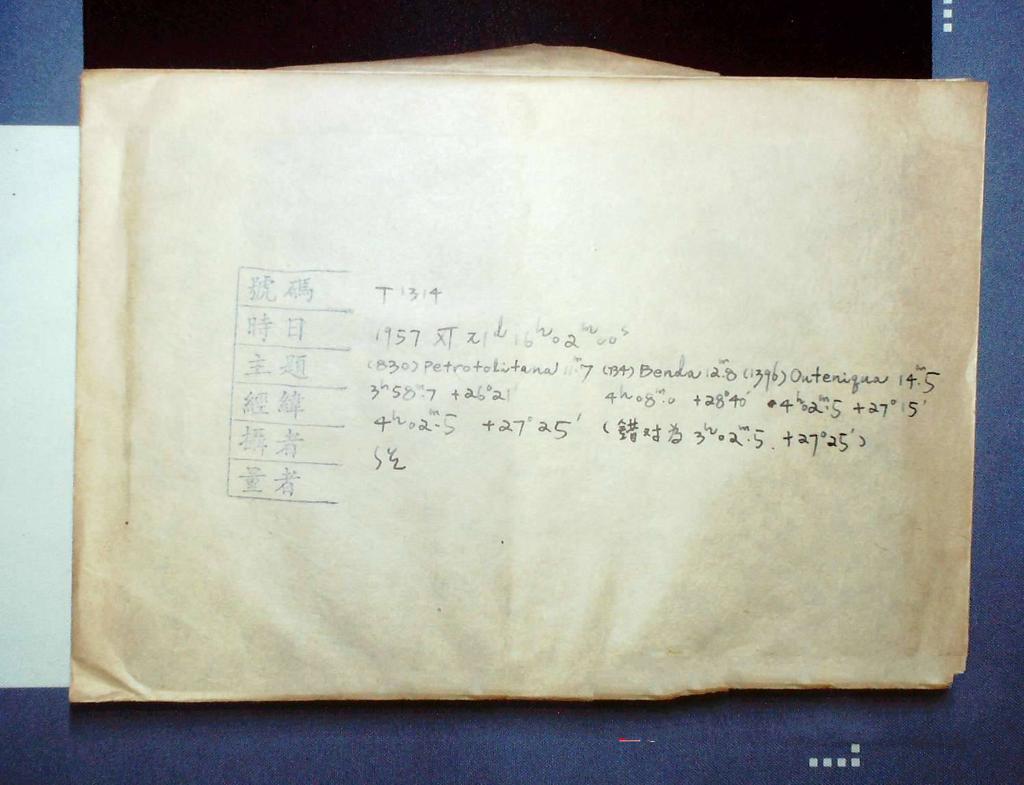 號碼 T1314
時日 1957 XI 21d 16h02m00s
主題 (830) Petropolitana 11m.7 (734) Benda 12m.8 (1396) Outeniqua 14m.5
經緯 3h58m.7 +26°21' 4h08m.0 +28°40' 4h02m.5 +27°15'
4h02m.5 +27°25' (錯对為 3h02m.5. +27°25')
攝者
量者